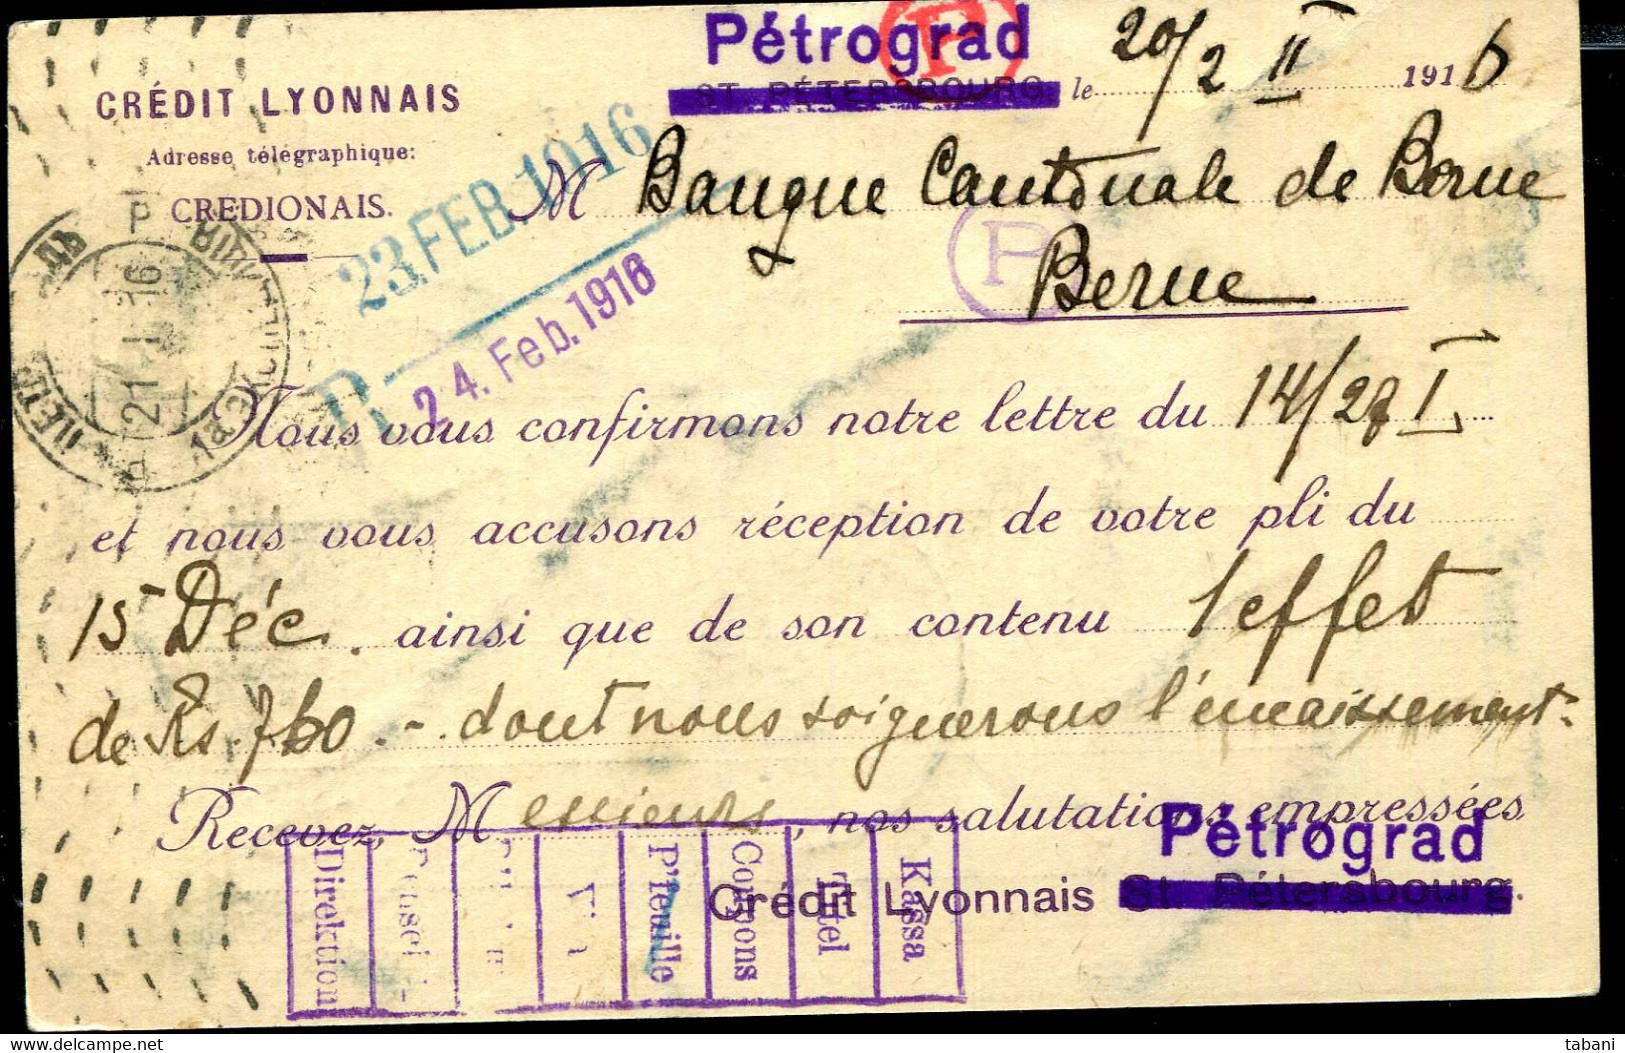 Pétrograd
ST. PÉTERSBOURG, le 20/2 II 1916
CRÉDIT LYONNAIS
Adresse télégraphique:
CREDIONAIS.
M Banque Cantonale de Berne
Berne
P
P
23 FEB. 1916
R
24. Feb. 1916
21 1 16
Nous vous confirmons notre lettre du 14/27 I
et nous vous accusons réception de votre pli du
15 Déc. ainsi que de son contenu 1 effet
de Rs 760.- dont nous soignerons l'encaissement.
Recevez, Messieurs, nos salutations empressées
Pétrograd
Crédit Lyonnais St. Pétersbourg.
Direktion
P'feuille
Coupons
Titel
Kassa
tabani